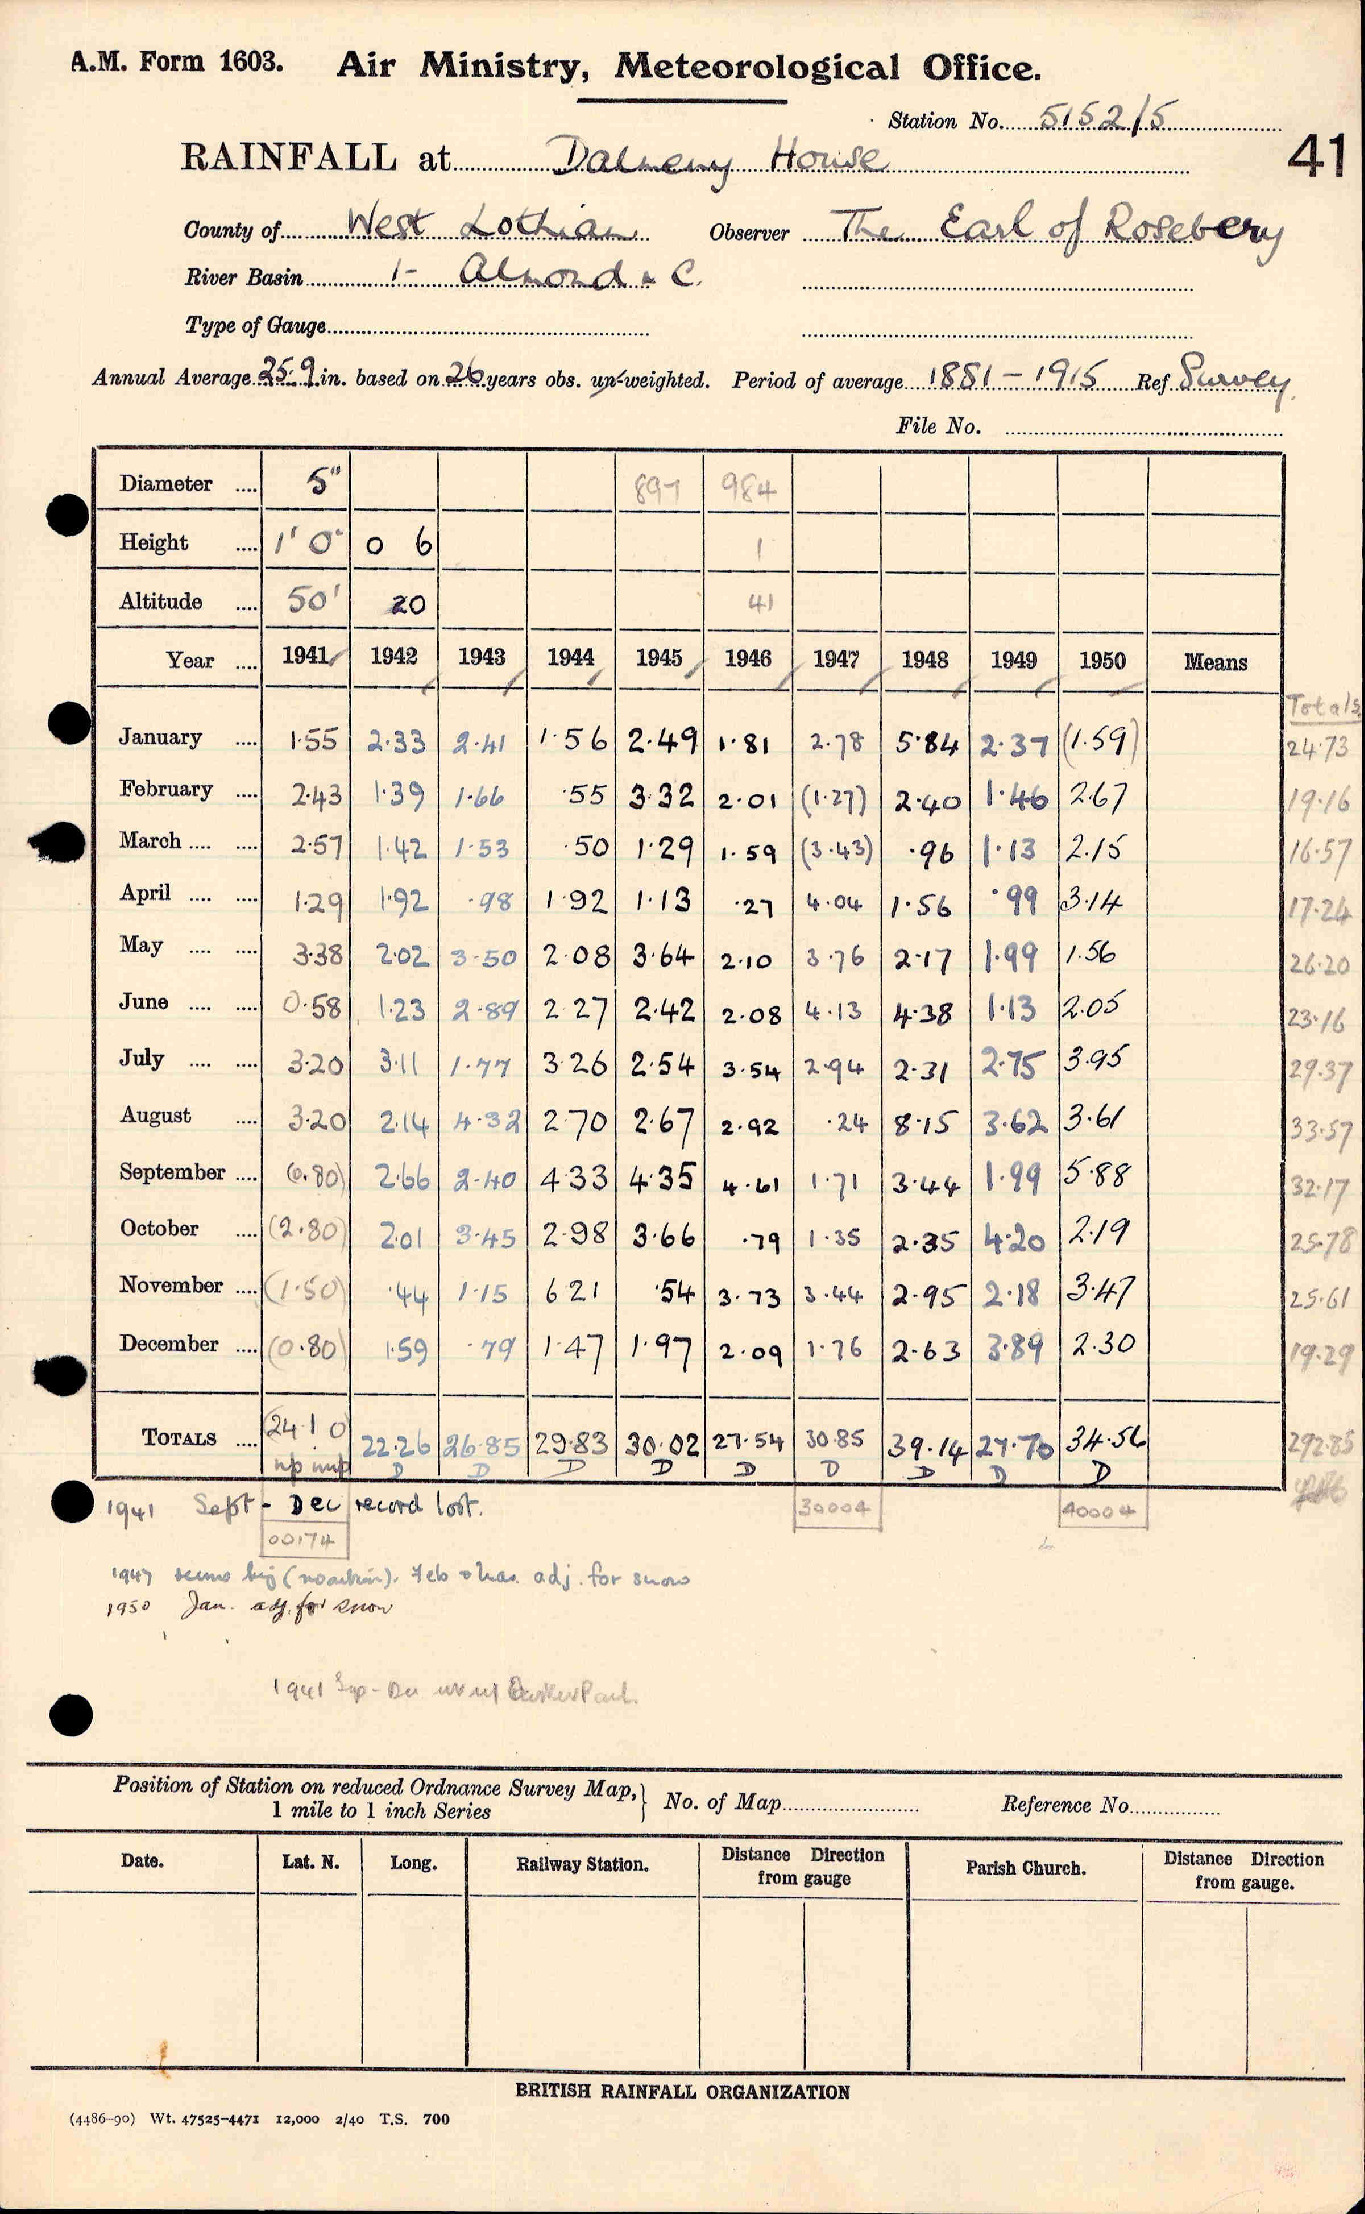 A.M. Form 1603. Air Ministry, Meteorological Office.
Station No. 5152/5
RAINFALL at Dalmeny House
41
County of West Lothian Observer The Earl of Rosebery
River Basin 1- Almond & C.
Type of Gauge
Annual Average 25.9 in. based on 26 years obs. un-weighted. Period of average 1881-1915 Ref Survey.
File No.
Diameter .... 5" 897 984
Height .... 1' 0" 0 6 1
Altitude .... 50' 20 41
Year .... 1941 1942 1943 1944 1945 1946 1947 1948 1949 1950 Means
Totals
January .... 1.55 2.33 2.41 1.56 2.49 1.81 2.78 5.84 2.37 (1.59) 24.73
February .... 2.43 1.39 1.66 .55 3.32 2.01 (1.27) 2.40 1.46 2.67 19.16
March .... .... 2.57 1.42 1.53 .50 1.29 1.59 (3.43) .96 1.13 2.15 16.57
April .... .... 1.29 1.92 .98 1.92 1.13 .27 4.04 1.56 .99 3.14 17.24
May .... .... 3.38 2.02 3.50 2.08 3.64 2.10 3.76 2.17 1.99 1.56 26.20
June .... .... 0.58 1.23 2.89 2.27 2.42 2.08 4.13 4.38 1.13 2.05 23.16
July .... .... 3.20 3.11 1.77 3.26 2.54 3.54 2.94 2.31 2.75 3.95 29.37
August .... 3.20 2.14 4.32 2.70 2.67 2.92 .24 8.15 3.62 3.61 33.57
September .... (0.80) 2.66 2.40 4.33 4.35 4.61 1.71 3.44 1.99 5.88 32.17
October .... (2.80) 2.01 3.45 2.98 3.66 .79 1.35 2.35 4.20 2.19 25.78
November .... (1.50) .44 1.15 6.21 .54 3.73 3.44 2.95 2.18 3.47 25.61
December .... (0.80) 1.59 .79 1.47 1.97 2.09 1.76 2.63 3.89 2.30 19.29
TOTALS .... (24.10) 22.26 26.85 29.83 30.02 27.54 30.85 39.14 27.70 34.56 292.85
D D D D D D D D D
1941 Sept - Dec record lost. 30004 40004
00174
1947 seems big Feb adj. for snow
1950 Jan. adj. for snow
1941 Sep-Dec
Position of Station on reduced Ordnance Survey Map, 1 mile to 1 inch Series } No. of Map Reference No.
Date. Lat. N. Long. Railway Station. Distance Direction from gauge Parish Church. Distance Direction from gauge.
BRITISH RAINFALL ORGANIZATION
(4486-90) Wt. 47525-4471 12,000 2/40 T.S. 700